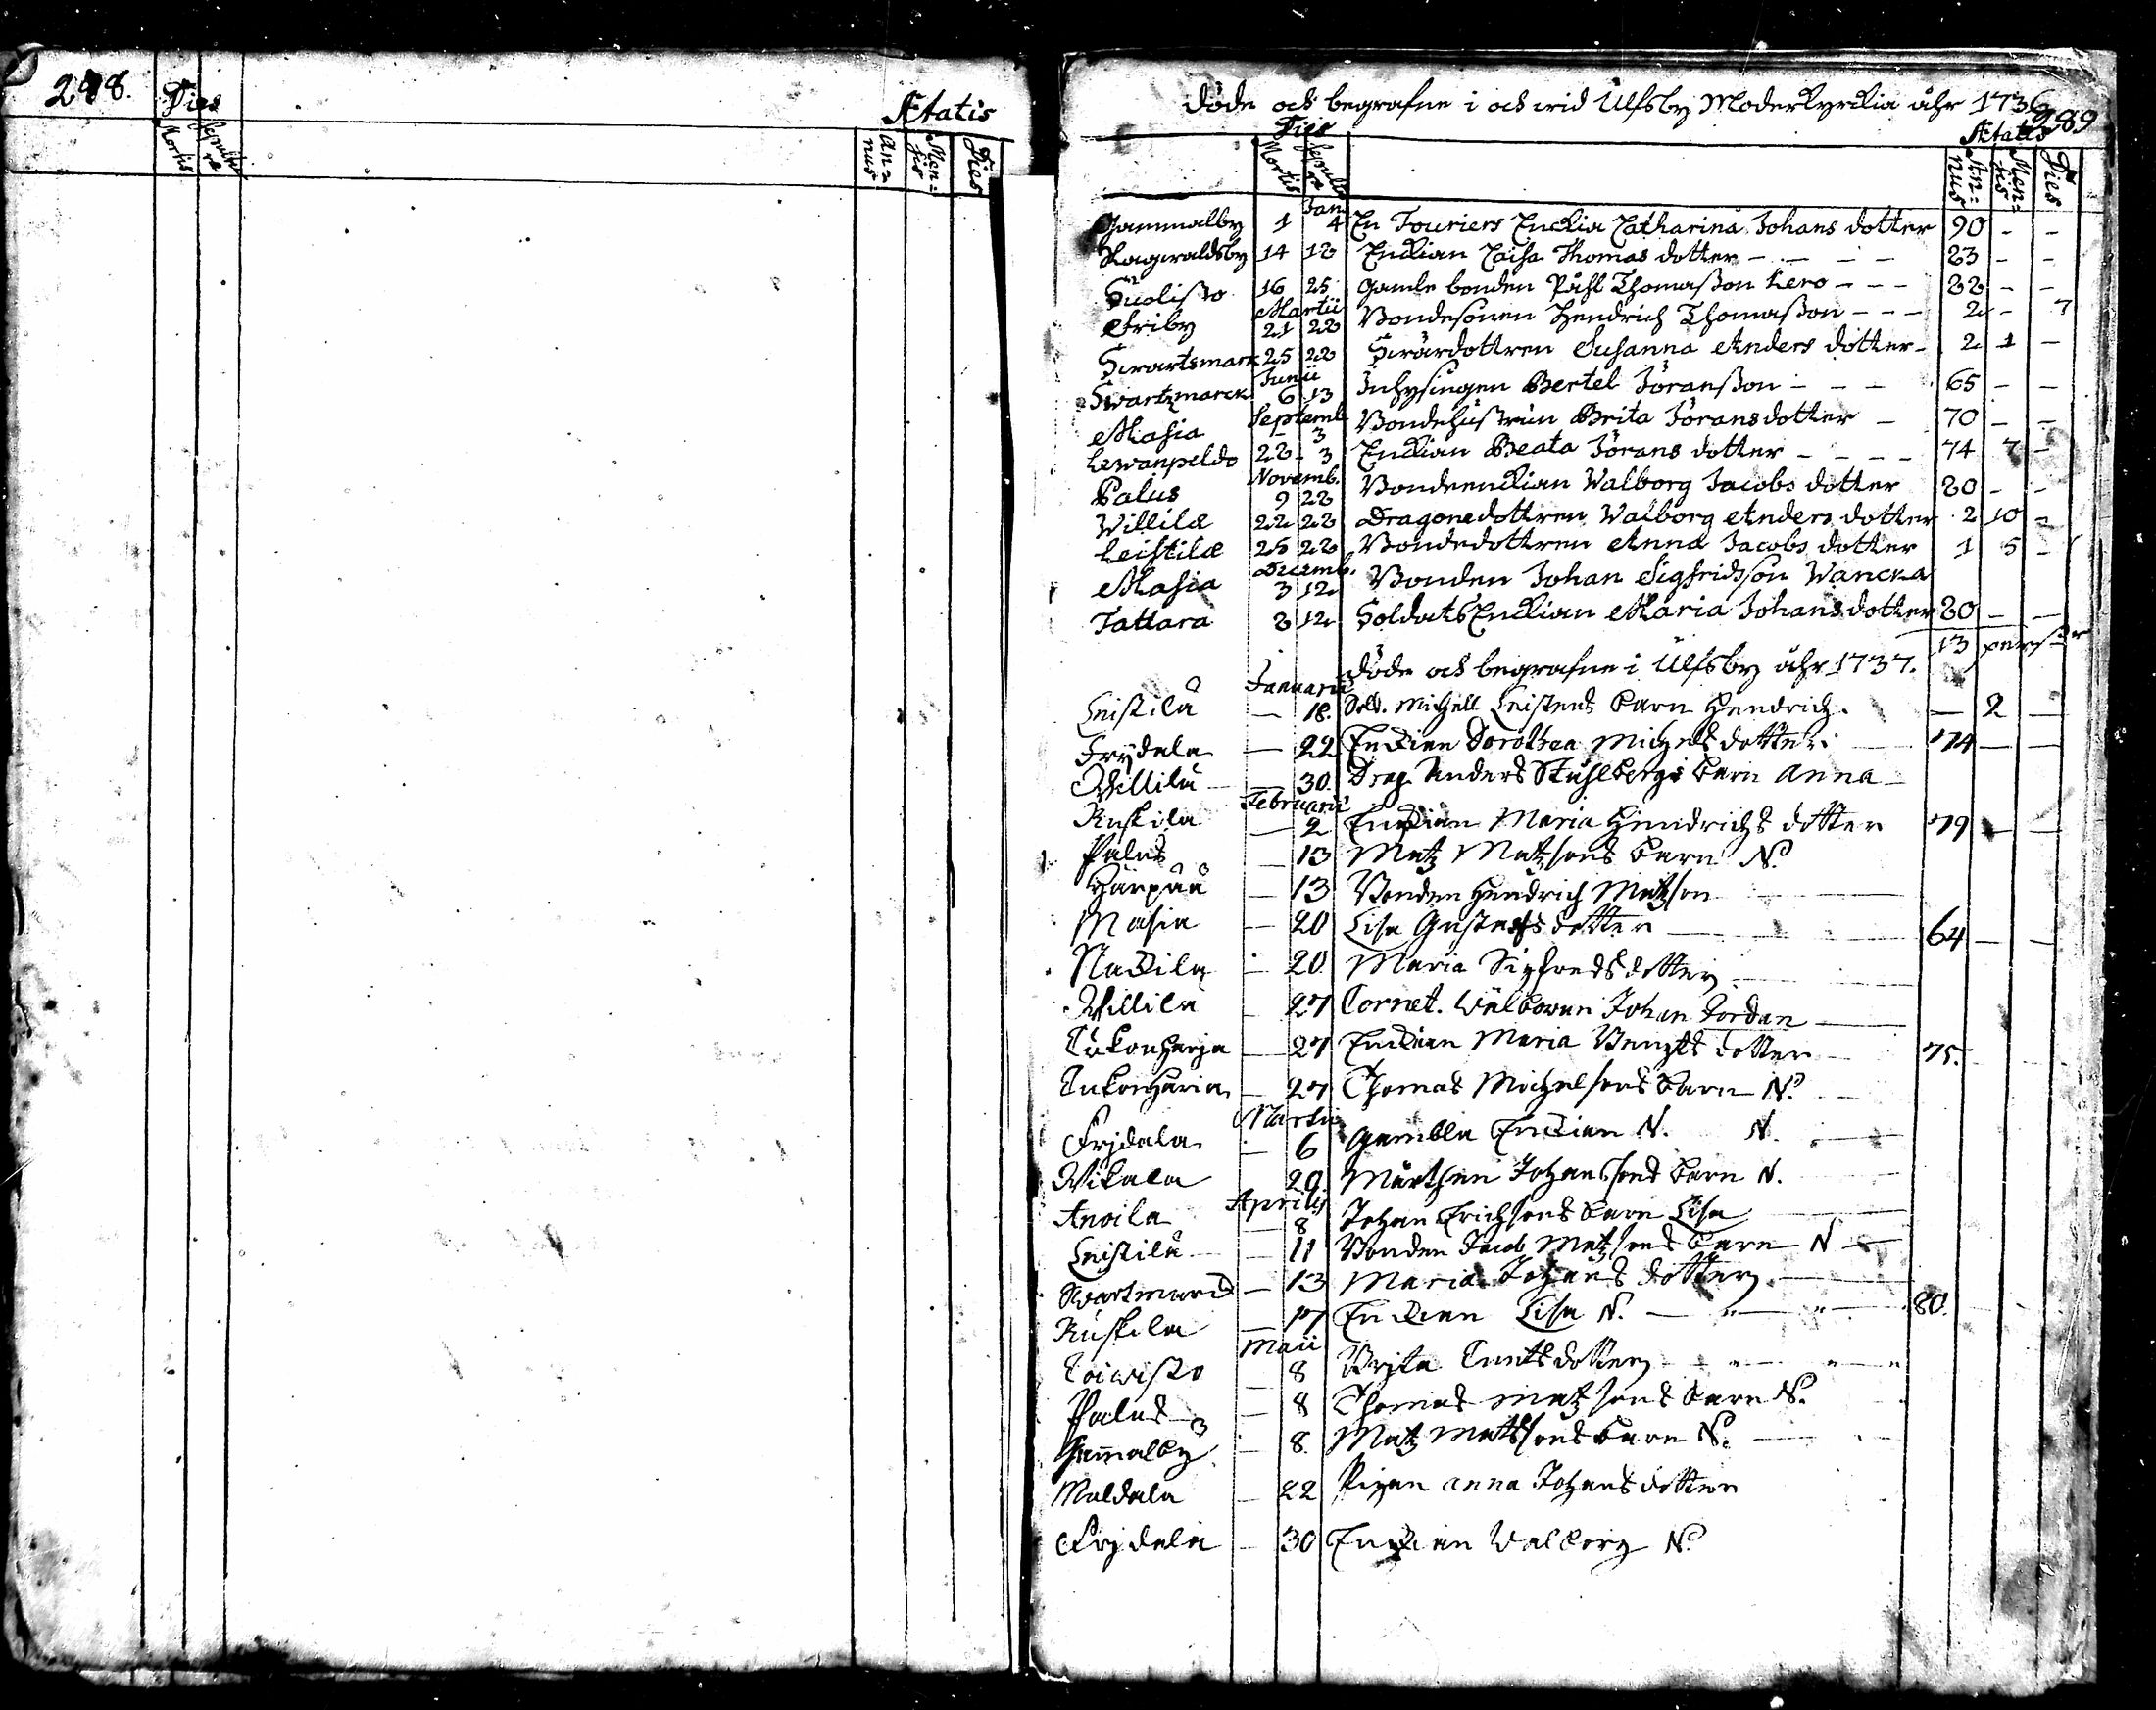 248.
Dies
Ætatis
Mortis Sepulturæ
Annus Mentis Dies
Döde och begrafne i och wid Ulfsby Moderkyrckia åhr 1736
289
Dies
Ætatis
Mortis Sepult
Annus Mentis Dies
Jan
Gammalby 1 4 En Fouriers Enckia Catharina Johans dotter 90 - -
Ragwaldsby 14 18 Enckian Caisa Thomas dotter - - - - 83 - -
Suolisto 16 25 Gamle bonden Påhl Thomasson Kero - - - 88 - -
Martii
Friby 21 28 Bondesonen Hendrich Thomasson - - - 2 - 7
Swartsmark 25 28 Swärdottren Susanna Anders dotter - 2 1 -
Junii
Swartzmarck 6 13 Inhysingen Bertel Jöransson - - - 65 - -
Septemb.
Masia - 3 Bondehustrun Brita Jöransdotter - 70 - -
Lewanpeldo 28 - 3 Enckian Beata Jörans dotter - - - - 74 7 -
Novemb.
Palus 9 28 Bondeenckian Walborg Jacobs dotter 80 - -
Willilæ 22 28 Dragonedottren Walborg Anders dotter 2 10 -
Leistilæ 25 28 Bondedottren Anna Jacobs dotter 1 5 -
Decemb.
Masia 3 12 Bonden Johan Sigfridsson Wancka
Tattara 8 12 Soldats Enckian Maria Johansdotter 80 - -
13 persohr
Döde och begrafne i Ulfsby åhr 1737.
Januarii
Leistilä — 18. Sold. Michell Leistens barn Hendrich. — 2 —
Frydala — 22 Enckian Dorothea Michels dotter. 74 — —
Willilä — 30. Drag. Anders Stuhlbergs barn Anna
Februarii
Ruskila — 2 Enckian Maria Hendrichs dotter 79 — —
Palus — 13 Matz Matzsons barn N.
Harpåå — 13 Bonden Hendrich Matzson
Masia — 20 Lisa Gustafsdotter 64 — —
Nackila — 20. Maria Sigfredsdotter
Willila — 27 Cornet. Wälboren Johan Jordan
Tukonharja — 27 Enckian Maria Bengts dotter 75.
Tukonharia — 27 Thomas Michelsons barn N.
Martii
Frydala — 6 Gambla Enckian N. N.
Wikala 20. Mårthen Johanssons barn N.
Aprilis
Anoila — 8 Johan Erichsons barn Lisa
Leistilä — 11 Bonden Jacob Matzsons barn N
Swartmarck — 13 Maria Johans dotter
Ruskila — 17 Enckian Lisa N. 80.
Maii
Toiwisto — 8 Brita Cnutsdotter
Palus — 8 Thomas Matzsons barn N.
Gammalby — 8. Matz Matssons barn N.
Maldala — 22 Pigan Anna Johans dotter
Frydala — 30 Enckian Walborg N.